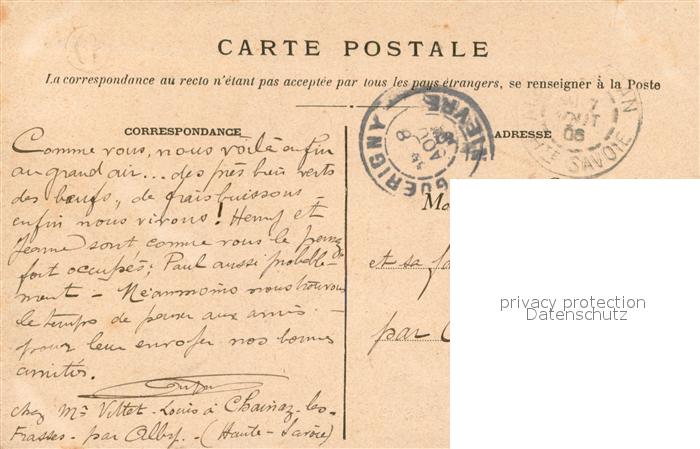 CARTE POSTALE
La correspondance au recto n'étant pas acceptée par tous les pays étrangers, se renseigner à la Poste
CORRESPONDANCE
ADRESSE
Comme vous, nous voilà enfin
au grand air... des prés bien verts
des bœufs, de frais buissons
enfin nous vivons! Henry et
Jeanne sont comme vous le pensez
fort occupés; Paul aussi probable-
ment - Néanmoins nous trouvons
le temps de penser aux amis -
pour leur envoyer nos bonnes
amitiés.
chez Mr Vittet-Louis à Chainaz-les-
Frasses - par Alby - (Haute-Savoie)
GUERIGNY
NIEVRE
8
AOUT
06
HTE SAVOIE
Mo
et sa fa
par
privacy protection
Datenschutz